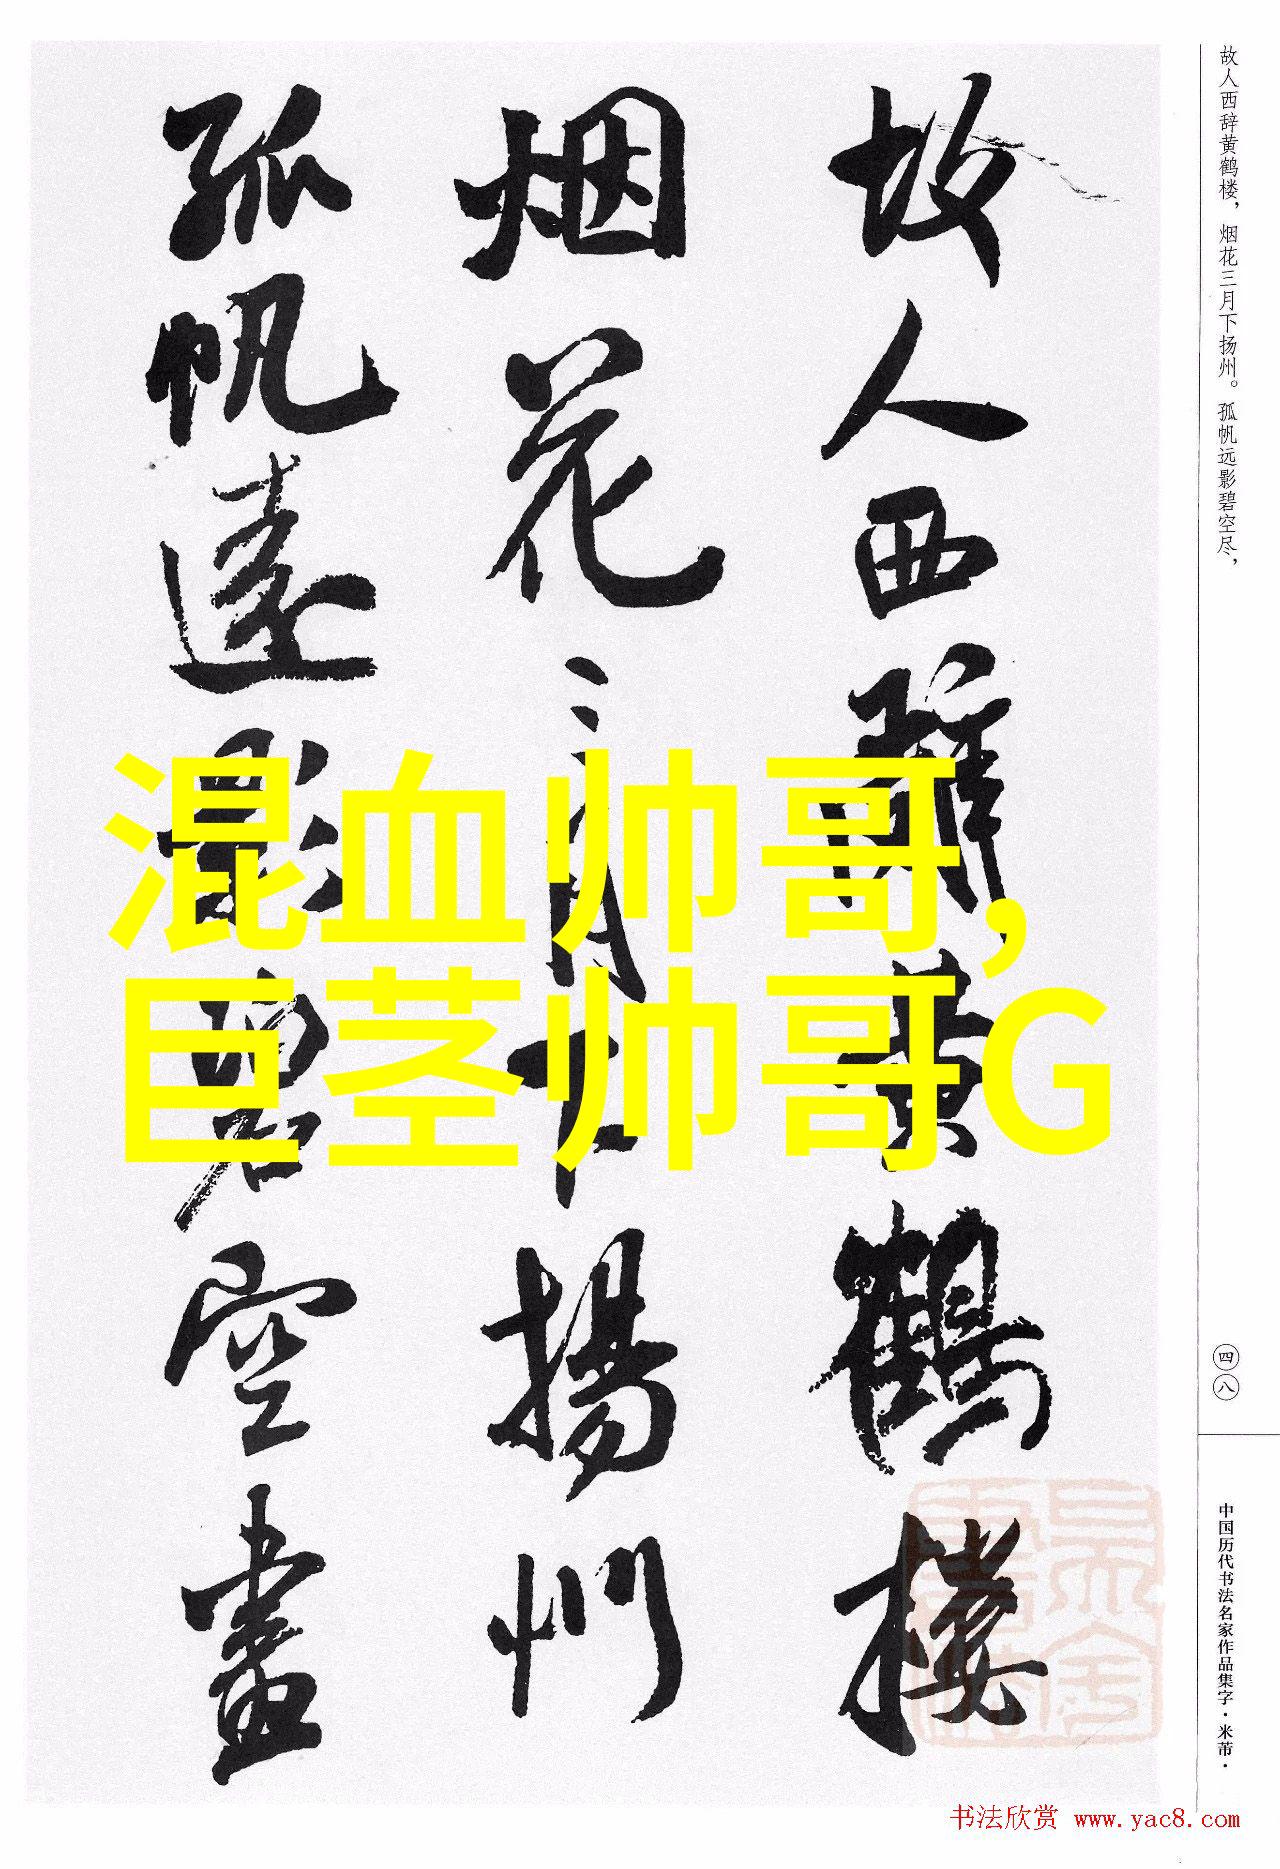 故人西辞黄鹤楼，烟花三月下扬州。孤帆远影碧空尽，
故人西辭黄鹤楼
烟花三月下揚州
孤帆遠影碧空盡
混血帅哥,
巨茎帅哥G
四八
中国历代书法名家作品集字·米芾·
书法欣赏 www.yac8.com